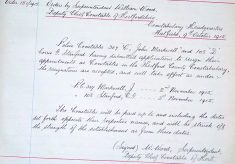 Orders by Superintendent William Wood,
Deputy Chief Constable of Hertfordshire
Constabulary Headquarters
Hatfield, 9th October 1915.
Police Constable 304 C, John Hartwell, and 105 "D"
Stanford having submitted applications to resign their
appointments as Constables in the Hertford County Constabulary,
the resignations are accepted, and will take effect as under:-
P.C. 304 Hartwell, J. 2nd November 1915.
" 105 Stanford, 2nd November 1915.
The Constables will be paid up to and including the dates
set forth opposite their respective names, and will be struck off
the strength of the establishment as from those dates.
(Signed) W. Wood, Superintendent
Deputy Chief Constable of Herts.